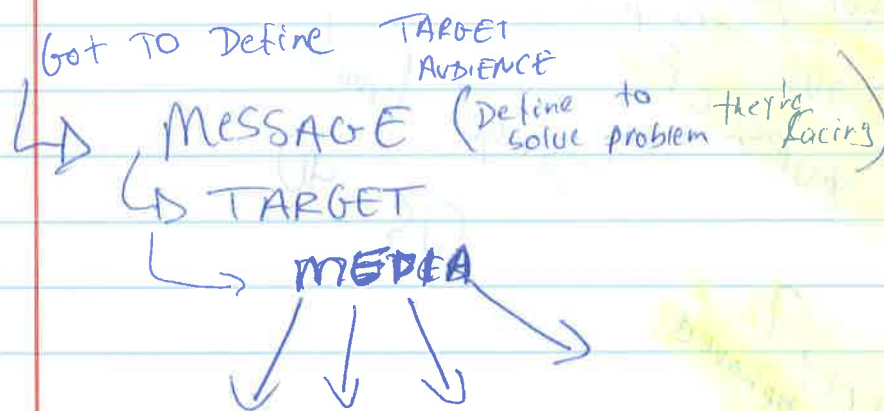 Got TO Define TARGET
AUDIENCE
MESSAGE (Define to they're
solve problem facing)
TARGET
MEDIA